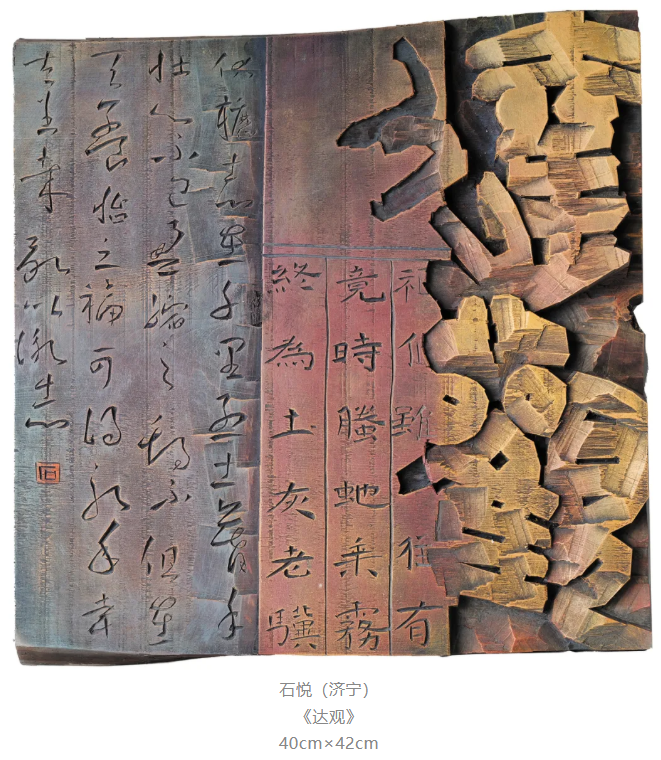 雖猶有
竟時螣虵乘霧
終為土灰老驥
伏櫪志在千里烈士暮年
壮心不已盈縮之期不但在
天養怡之福可得永年幸
甚至哉歌以詠志
石悦（济宁）
《达观》
40cm×42cm